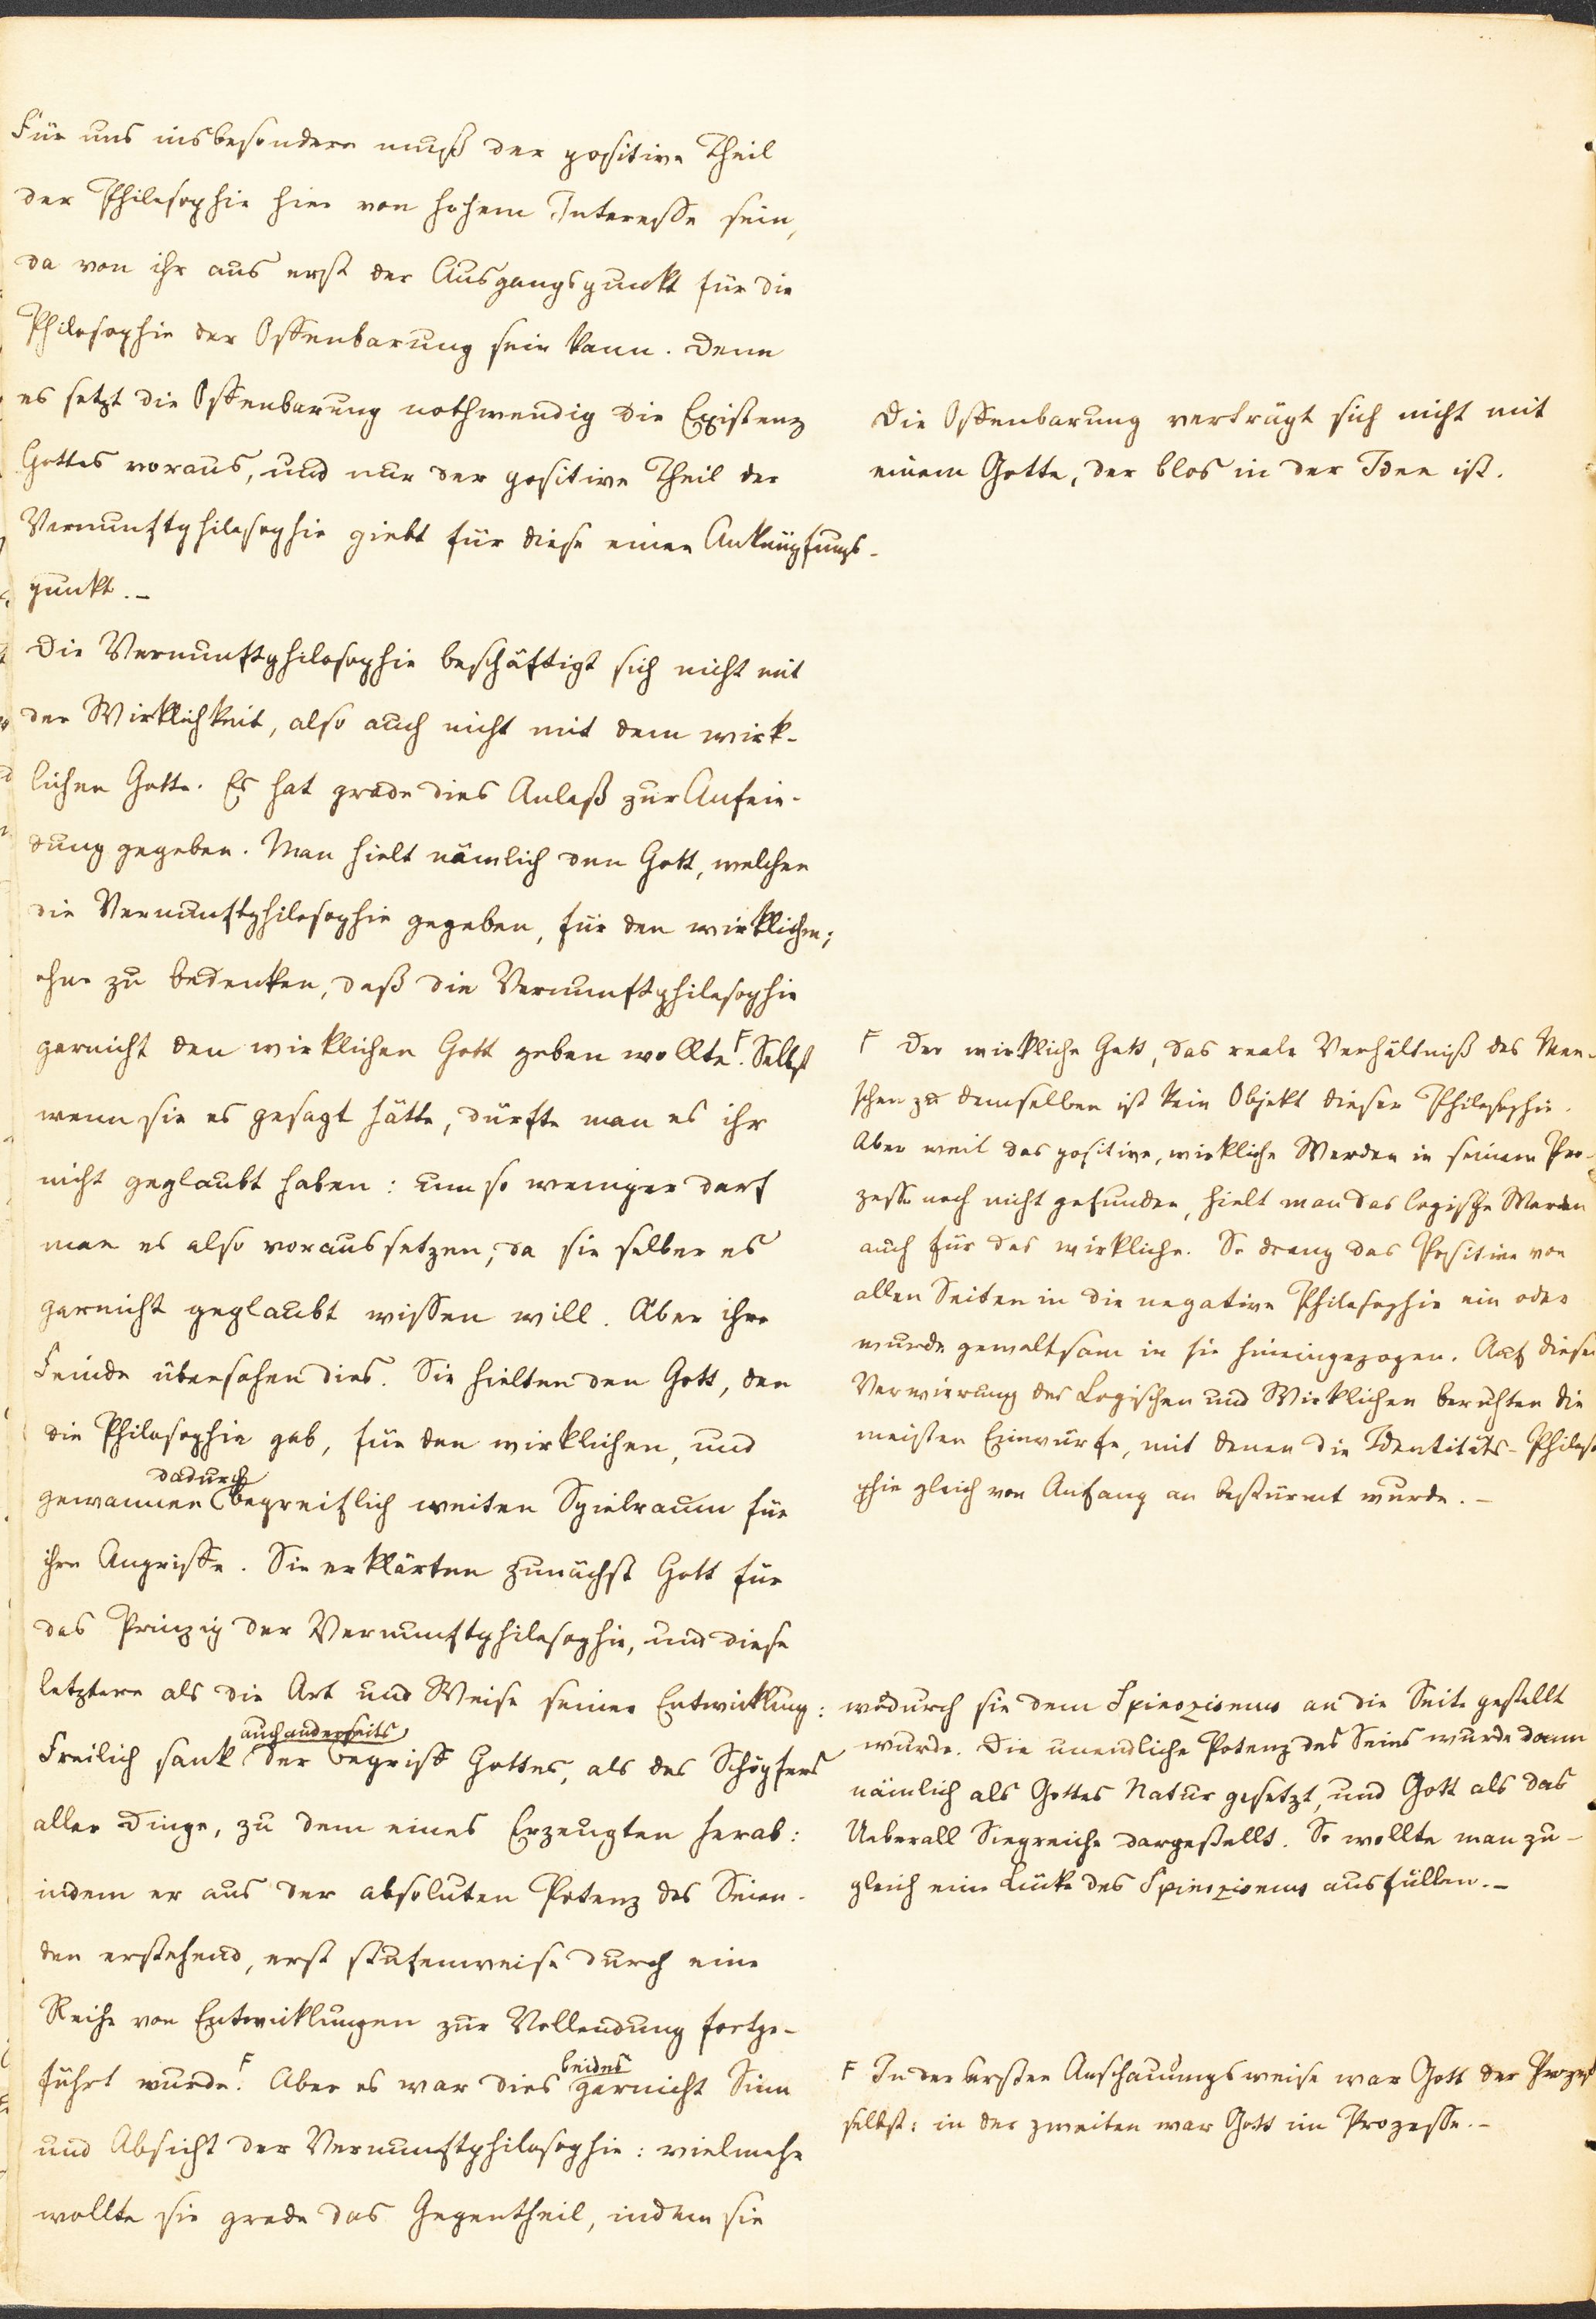 Für uns insbesondere muß der positive Theil
der Philosophie hier von hohem Interesse sein,
da von ihr aus erst der Ausgangspunkt für die
Philosophie der Offenbarung sein kann. Denn
es setzt die Offenbarung nothwendig die Existenz
Gottes voraus, und nur der positive Theil der
Vernunftphilosophie giebt für diese einen Anknüpfungs-
punkt. –
Die Vernunftphilosophie beschäftigt sich nicht mit
der Wirklichkeit, also auch nicht mit dem wirk-
lichen Gotte. Es hat grade dies Anlaß zur Anfein-
dung gegeben. Man hielt nämlich den Gott, welchen
die Vernunftphilosophie gegeben, für den wirklichen;
ohne zu bedenken, daß die Vernunftphilosophie
garnicht den wirklichen Gott geben wollte F. Selbst
wenn sie es gesagt hätte, dürfte man es ihr
nicht geglaubt haben: um so weniger darf
man es also voraussetzen, da sie selber es
garnicht geglaubt wissen will. Aber ihre
Feinde übersahen dies. Sie hielten den Gott, den
die Philosophie gab, für den wirklichen, und
dadurch
gewannen begreiflich weiten Spielraum für
ihre Angriffe. Sie erklärten zunächst Gott für
das Prinzip der Vernunftphilosophie, und diese
letztere als die Art und Weise seiner Entwicklung:
auch anderseits
Freilich sank der Begriff Gottes, als des Schöpfers
aller Dinge, zu dem eines Erzeugten herab:
indem er aus der absoluten Potenz des Seien-
den erstehend, erst stufenweise durch eine
Reihe von Entwicklungen zur Vollendung fortge-
führt wurde F. Aber es war dies beides garnicht Sinn
und Absicht der Vernunftphilosophie: vielmehr
wollte sie grade das Gegentheil, indem sie
Die Offenbarung verträgt sich nicht mit
einem Gotte, der blos in der Idee ist.
F Der wirkliche Gott, das reale Verhältniß des Men-
schen zu demselben ist kein Objekt dieser Philosophie.
Aber weil das positive, wirkliche Werden in seinem Pro-
zesse noch nicht gefunden, hielt man das logische Werden
auch für das wirkliche. So drang das Positive von
allen Seiten in die negative Philosophie ein oder
wurde gewaltsam in sie hineingezogen. Auf dieser
Verwirrung des Logischen und Wirklichen beruhten die
meisten Einwürfe, mit denen die Identitäts-Philoso
phie gleich von Anfang an bestürmt wurde. –
wodurch sie dem Spinozismus an die Seite gestellt
wurde. Die unendliche Potenz des Seins wurde dann
nämlich als Gottes Natur gesetzt, und Gott als das
Ueberall Siegreiche dargestellt. So wollte man zu-
gleich eine Lücke des Spinozismus ausfüllen. –
F In der ersten Anschauungsweise war Gott der Prozeß
selbst: in der zweiten war Gott im Prozesse. –